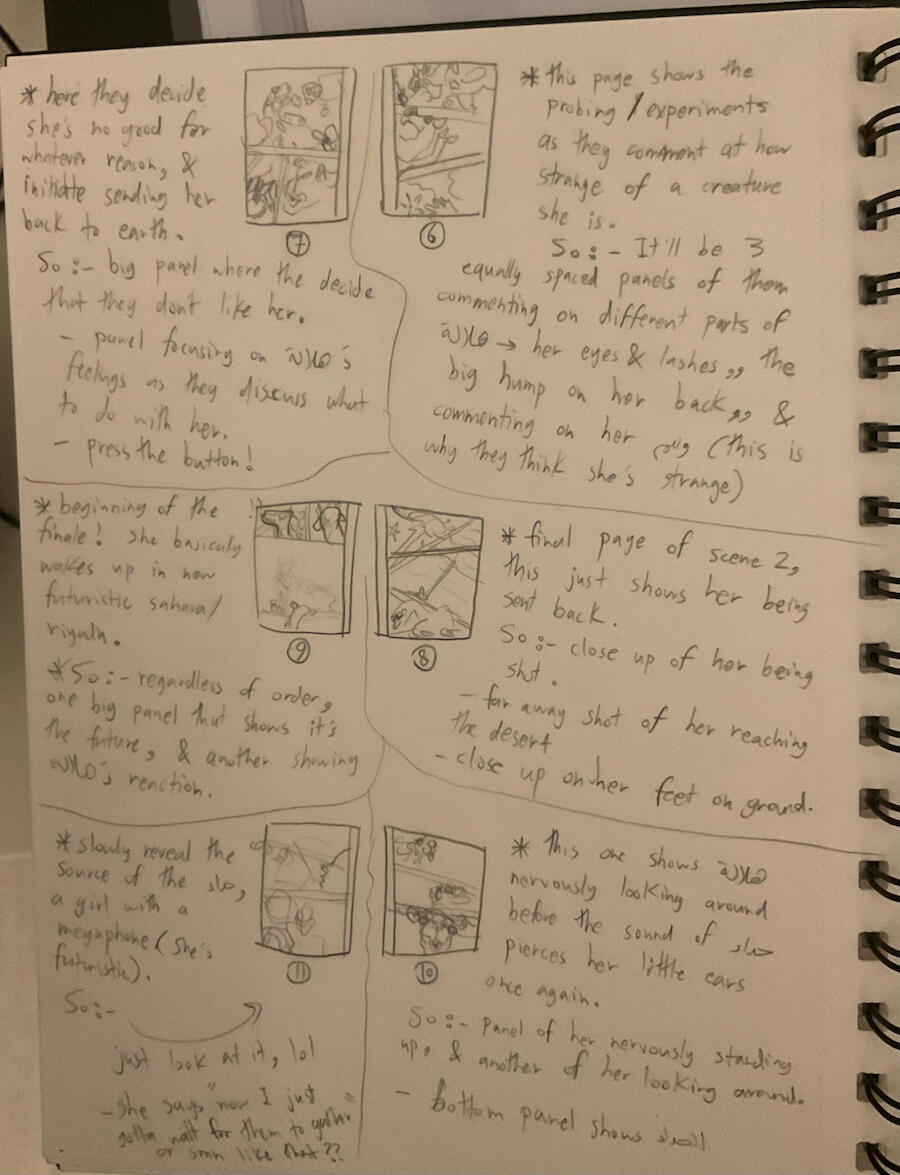 * this page shows the
probing / experiments
as they comment at how
strange of a creature
she is.
So:- It'll be 3
equally spaced panels of them
commenting on different parts of
→ her eyes & lashes,, the
big hump on her back,,, &
commenting on her (this is
why they think she's strange)
6
* here they decide
she's no good for
whatever reason, &
initidate sending her
back to earth.
So:- big panel where the decide
that they don't like her.
- panel focusing on 's
feelings as they discuss what
to do with her.
- press the button!
7
* final page of scene 2,
this just shows her being
sent back.
So:- close up of her being
shot.
- far away shot of her reaching
the desert
- close up on her feet on ground.
8
* beginning of the
finale! she basicaly
wakes up in new
futuristic sahara/
riyadh.
* So:- regardless of order,
one big panel that shows it's
the future, & another showing
's reaction.
9
* This one shows
nervously looking around
before the sound of
pierces her little ears
once again.
So:- panel of her nervously standing
up, & another of her looking around.
- bottom panel shows
10
* slowly reveal the
source of the ,
a girl with a
megaphone (she's
futuristic).
So:-
just look at it, lol
- she says "now I just
gotta wait for them to gather"
or smn like that??
11